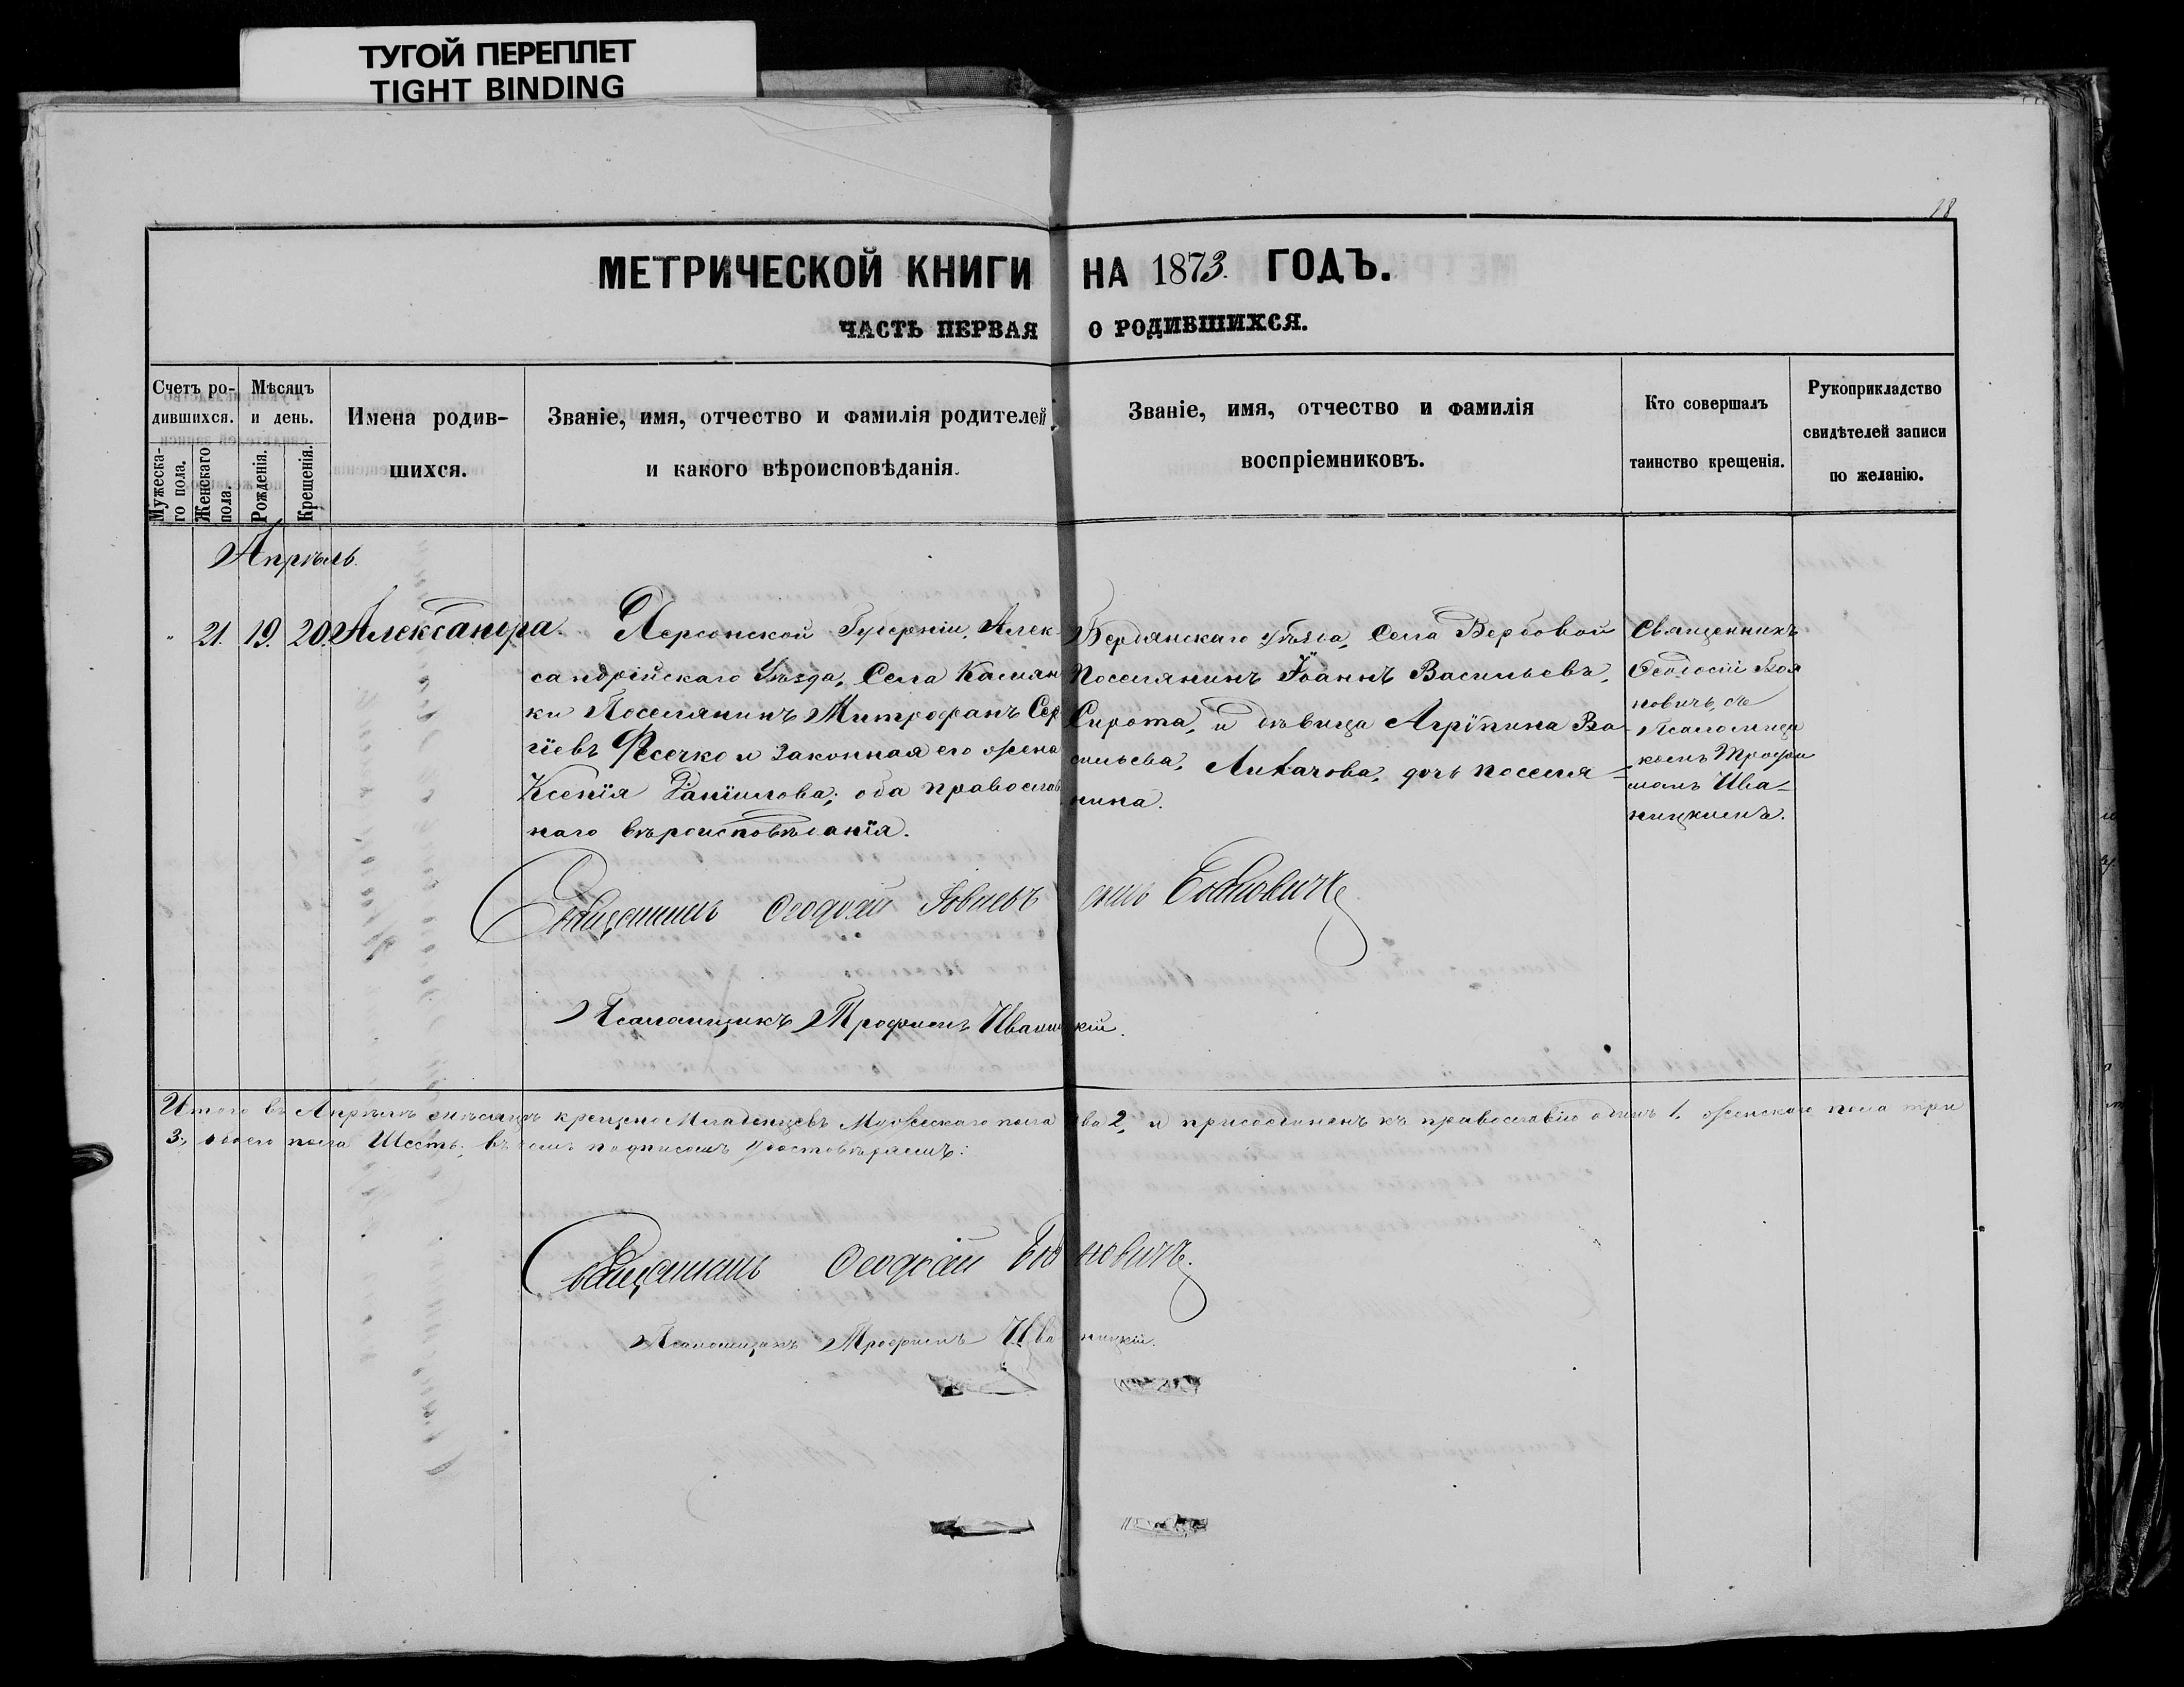 ТУГОЙ ПЕРЕПЛЕТ
TIGHT BINDING
18
МЕТРИЧЕСКОЙ КНИГИ НА 1873. ГОДЪ.
ЧАСТЬ ПЕРВАЯ О РОДИВШИХСЯ.
Счетъ ро-
дившихся.
Мужеска-
го пола.
Женскаго
пола.
Мѣсяцъ
и день.
Рожденія.
Крещенія.
Имена родив-
шихся.
Званіе, имя, отчество и фамилія родителей,
и какого вѣроисповѣданія.
Званіе, имя, отчество и фамилія
воспріемниковъ.
Кто совершалъ
таинство крещенія.
Рукоприкладство
свидѣтелей записи
по желанію.
Апрѣль.
" 21. 19. 20. Александра.
Херсонской Губерніи, Алек-
сандрійскаго Уѣзда, Села Камян
ки Поселянинъ Митрофанъ Сер
гіевъ Фесечко и законная его жена
Ксенія Даніилова; оба православ
наго вѣроисповѣданія.
Бердянскаго уѣзда, Села Вербовой
Поселянинъ Іоаннъ Васильевъ,
Сирота, и дѣвица Агріпина Ва-
сильева, Лихачова, дочь поселя-
нина.
Священникъ
Ѳеодосій Боя
новичъ, съ
Псаломщи
комъ Трофи
момъ Ива-
ницкимъ.
Священникъ Ѳеодосій Бояновичъ
Псаломщикъ Трофимъ Иваницкій.
Итого въ Апрѣлѣ мѣсяцѣ крещено Младенцевъ Мужескаго пола два 2, и присоединенъ къ православію одинъ 1, женскаго пола три
3, обоего пола Шесть; въ чемъ подписомъ удостовѣряемъ:
Священникъ Ѳеодосій Бояновичъ.
Псаломщикъ Трофимъ Иваницкій.